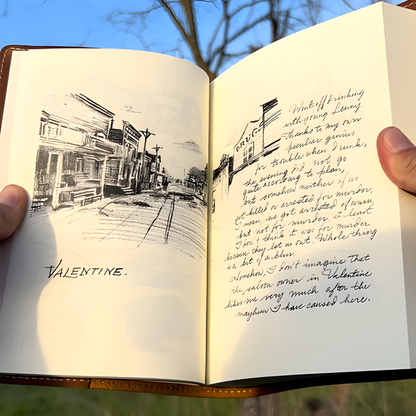 VALENTINE.
DRUG
Went off drinking
with young Lenny
thanks to my own
peculiar genius
for trouble when I drink,
the evening did not go
quite according to plan,
and somehow neither of us
got killed or arrested for murder.
I mean we got arrested of course,
but not for murder at least
I don't think it was for murder
because they let us out. Whole thing
was a bit of a blur.
Somehow, I don't imagine that
the saloon owner in Valentine
likes me very much after the
mayhem I have caused here.